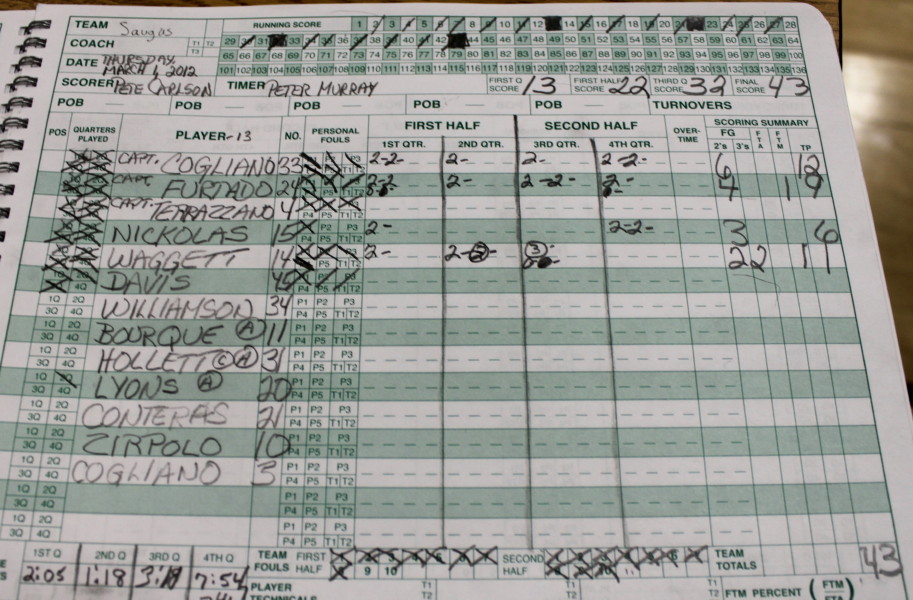 TEAM Saugus RUNNING SCORE 1 2 3 4 5 6 7 8 9 10 11 12 14 15 16 17 18 19 20 21 23 24 25 26 27 28
COACH T1 T2 T3 29 30 31 33 34 35 36 37 38 39 40 41 42 44 45 46 47 48 49 50 51 52 53 54 55 56 57 58 59 60 61 62 63 64
65 66 67 68 69 70 71 72 73 74 75 76 77 78 79 80 81 82 83 84 85 86 87 88 89 90 91 92 93 94 95 96 97 98 99 100
DATE THURSDAY, MARCH 1, 2012 101 102 103 104 105 106 107 108 109 110 111 112 113 114 115 116 117 118 119 120 121 122 123 124 125 126 127 128 129 130 131 132 133 134 135 136
SCORER PETE CARLSON TIMER PETER MURRAY FIRST Q SCORE 13 FIRST HALF SCORE 22 THIRD Q SCORE 32 FINAL SCORE 43
POB POB POB POB POB TURNOVERS
POS QUARTERS PLAYED PLAYER-13 NO. PERSONAL FOULS FIRST HALF SECOND HALF OVER-TIME SCORING SUMMARY
1ST QTR. 2ND QTR. 3RD QTR. 4TH QTR. FG 2's 3's FTA FTM TP
CAPT. COGLIANO 33 2-2- 2- 2- 2-2- 6 12
CAPT. FURTADO 24 2-2 2- 2-2- 2- 4 1 9
CAPT. TERRAZZANO 4 P4 P5 T1 T2
NICKOLAS 15 P2 P3 P4 P5 T1 T2 2- 2-2- 3 6
WAGGETT 14 P5 T1 T2 2- 2-② ③ 2 2 1 11
DAVIS 45 P4 P5 T1 T2
1Q 2Q 3Q 4Q WILLIAMSON 34 P1 P2 P3 P4 P5 T1 T2
1Q 2Q 3Q 4Q BOURQUE Ⓐ 11 P1 P2 P3 P4 P5 T1 T2
1Q 2Q 3Q 4Q HOLLETT ⒸⒶ 31 P1 P2 P3 P4 P5 T1 T2
1Q 2Q 3Q 4Q LYONS Ⓐ 20 P1 P2 P3 P4 P5 T1 T2
1Q 2Q 3Q 4Q CONTERAS 21 P1 P2 P3 P4 P5 T1 T2
1Q 2Q 3Q 4Q ZIRPOLO 10 P1 P2 P3 P4 P5 T1 T2
1Q 2Q 3Q 4Q COGLIANO 3 P1 P2 P3 P4 P5 T1 T2
1Q 2Q 3Q 4Q P1 P2 P3 P4 P5 T1 T2
1Q 2Q 3Q 4Q P1 P2 P3 P4 P5 T1 T2
1ST Q 2ND Q 3RD Q 4TH Q TEAM FOULS FIRST HALF 9 10 SECOND HALF TEAM TOTALS 43
2:05 1:18 7:54
PLAYER TECHNICALS T1 T2 T1 T2 T1 T2 FTM PERCENT (FTM/FTA)